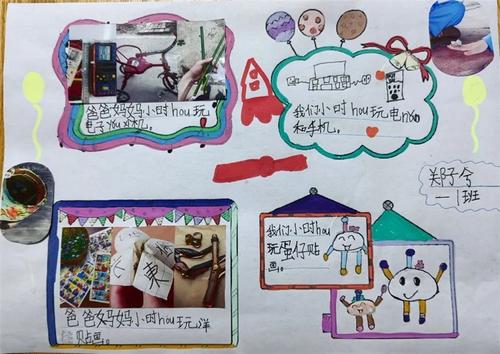 爸爸妈妈小时hou玩
电子you对机。
我们小时hou玩电nǎo
和手机。
郑子兮
一1班
爸爸妈妈小时hou玩洋
贴画。
我们小时hou
玩蛋仔贴
画。